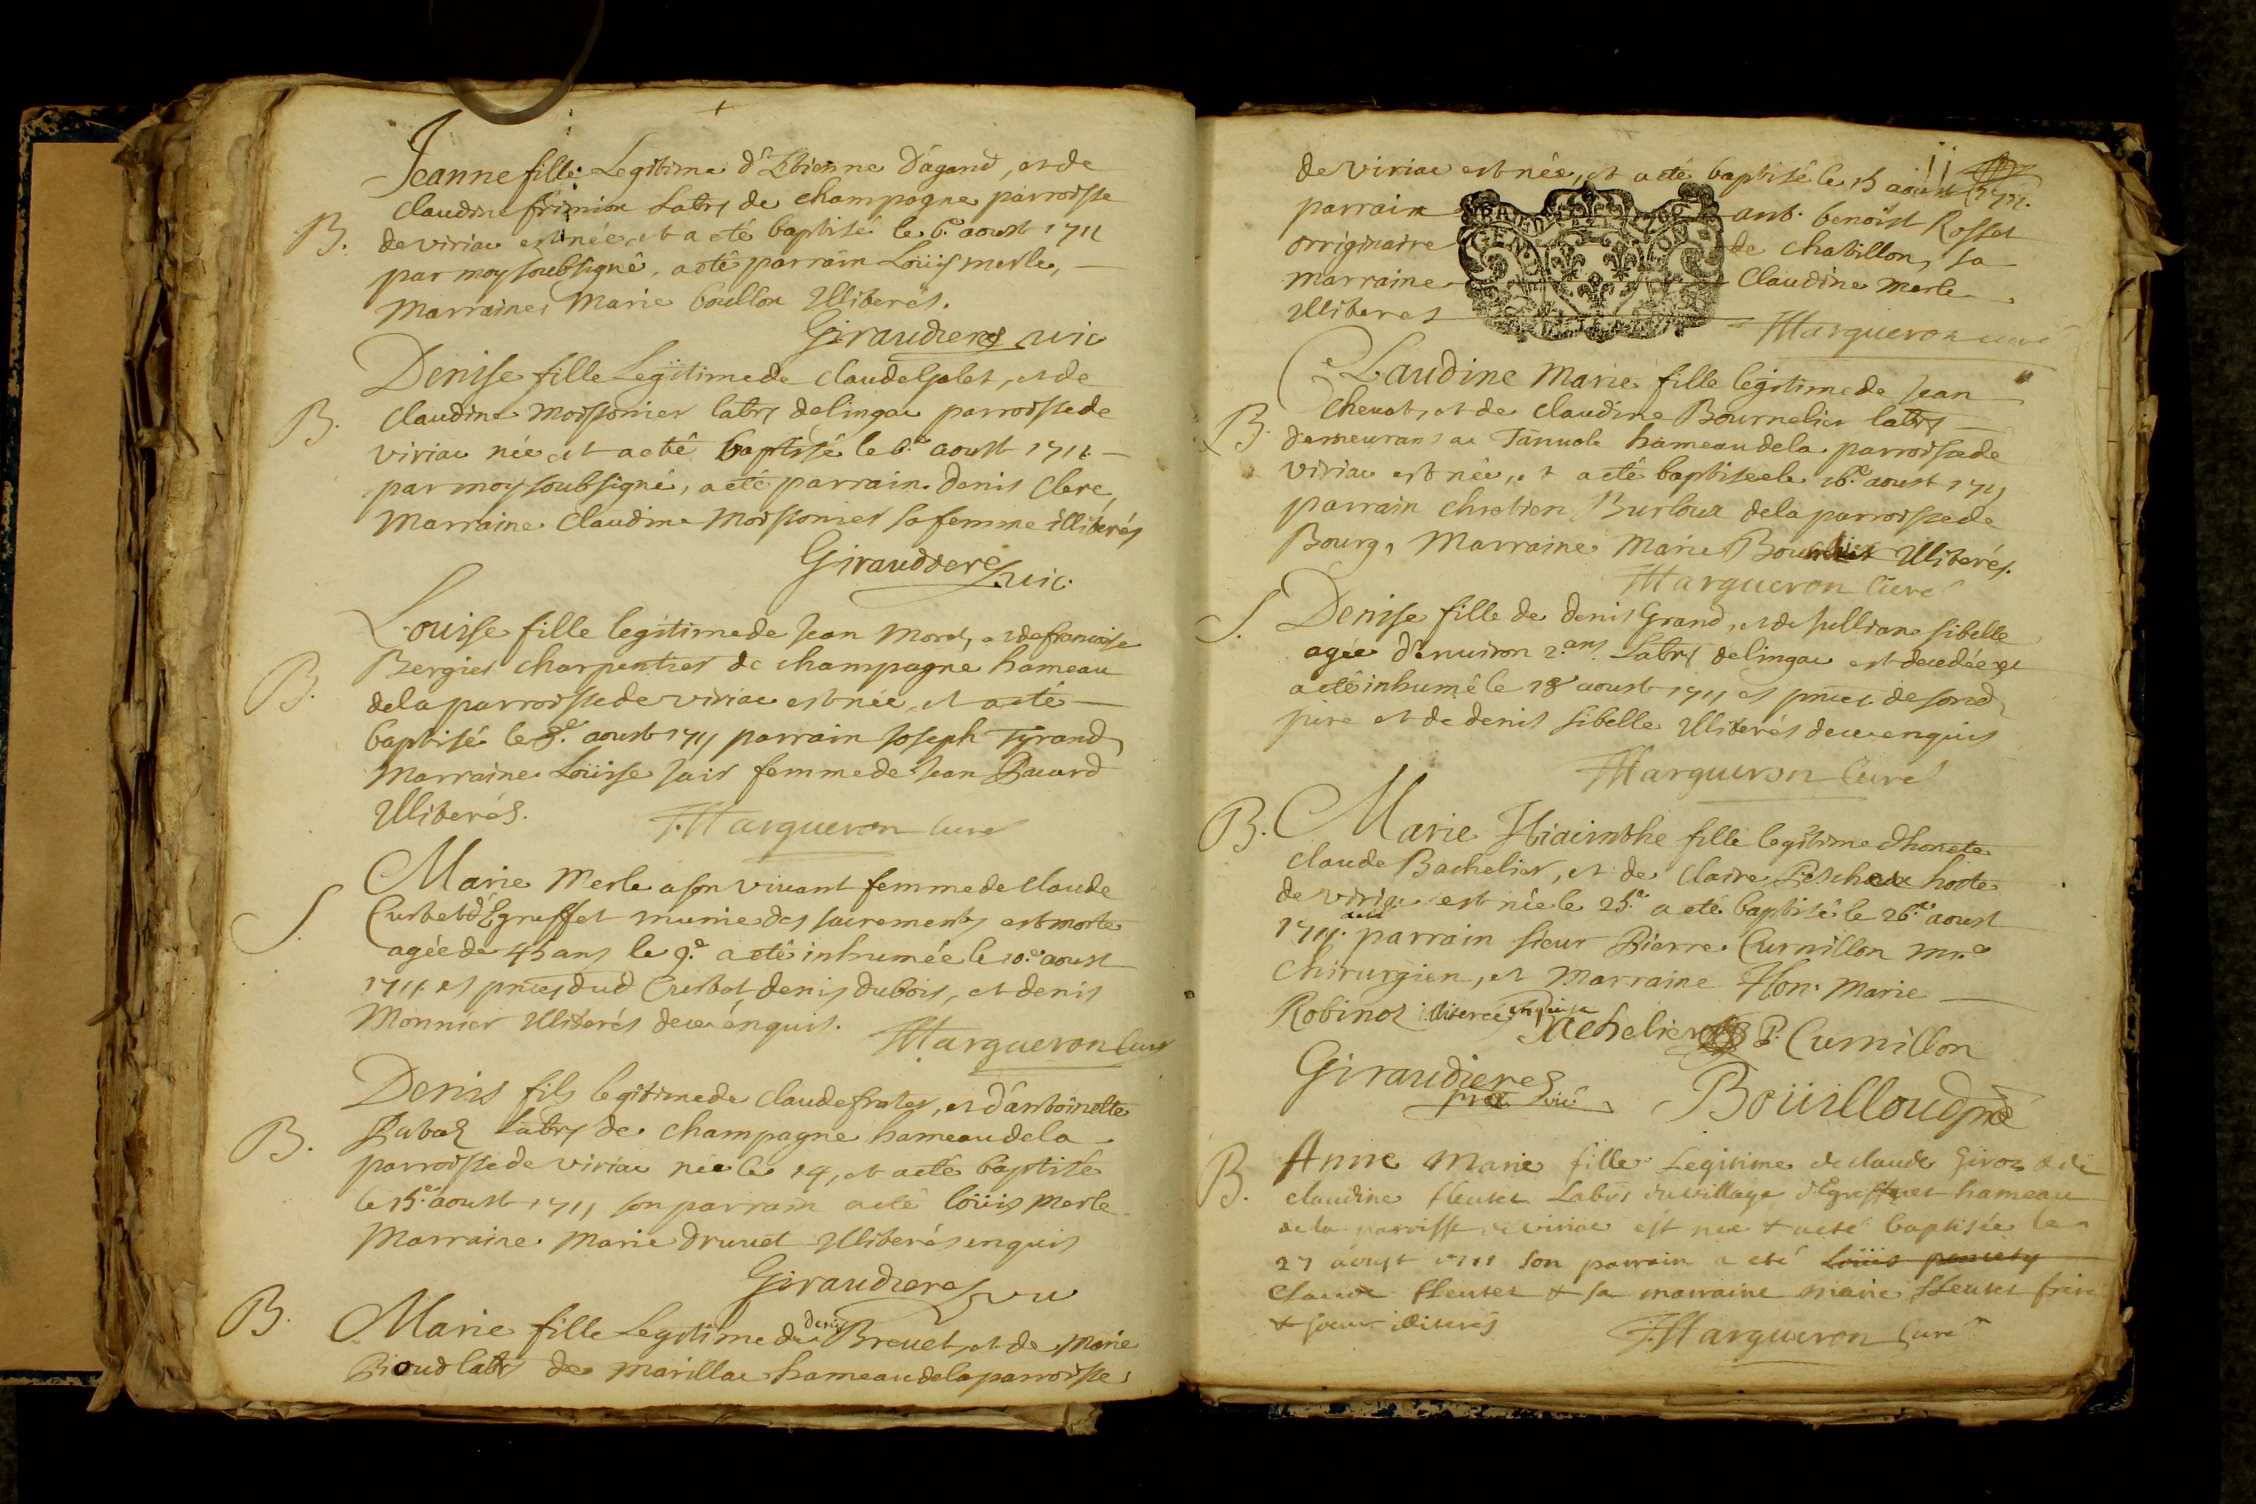 Jeanne fille Legitime d'Etienne Dagand, et de
Claudine frimion Labrs de champagne parroisse
B. de viriac est née, et a eté baptisé le 6.e aoust 1711
par moy soubsigné, a eté parrain Loüis merle,
Marraine, Marie boullon Illiteres.
Giraudiere vic
Denise fille Legitime de claude , et de
B. Claudine Moissonier labrs de lingac parroisse de
viriac née et a eté baptisé le 6.e aoust 1711
par moy soubsigné, a eté parrain denis Clerc,
Marraine Claudine Moissonier sa femme illiterés
Giraudiere vic.
Louise fille legitime de Jean Morel, et de francoise
Bergier charpentier de champagne hameau
B. de la parroisse de viriac est née, et a eté
baptisé le 8.e aoust 1711 parrain Joseph Tyrand,
Marraine Loüise femme de Jean
Illiterés. Margueron Curé
Marie Merle a son vivant femme de claude
S. Curbet d'Egreffet munie des sacrements est morte
agée de 45 ans le 9.e a eté inhumée le 10.e aoust
1711. es pnces dud Curbet denis dubois, et denis
Monnier Illiterés de ce enquis. Margueron Curé
Denis fils legitime de claude frater, et d'antoinette
B. Labrs de champagne hameau de la
parroisse de viriac née le 14, et a eté baptisé
le 15.e aoust 1711 son parrain a eté loüis Merle
Marraine Marie druuet Illiterés enquis
Giraudiere vic
B. Marie fille Legitime de denis Breuet, et de Marie
Bioud labrs de Marillac hameau de la parroisse
11
de viriac est née, et a eté baptisé le 15 aoust 1711.
parrain ant. benoist Rosset
orriginaire de chatillon, sa
marraine Claudine Merle
Illiteres
GEN
Margueron curé
Claudine Marie fille legitime de Jean
Cheuat, et de Claudine Bournelier labrs
B. demeurans au Tanuole hameau de la parroisse de
viriac est née, et a eté baptisée le 16.e aoust 1711
parrain chretien Burtoux de la parroisse de
Bourg, Marraine Marie Illiterés.
Margueron Curé
S. Denise fille de denis Grand, et de Julliane sibelle
agée d'enuiron 2.ans Labrs de lingac est decedée et
a eté inhumé le 18 aoust 1711 es pnces de sond
pere et de denis sibelle Illiterés de ce enquis
Margueron Curé
B. Marie Hiacinthe fille legitime d'honete
claude Bachelier, et de Claire hoste
de viriac est née le 25.e a eté baptisé le 26.e aoust
1711. parrain sieur Pierre Curnillon mre
Chirurgien, et Marraine Hon. Marie
Robinot illiterée enquise
Bachelier P. Curnillon
Giraudiere
ptre vic Boüilloud pnt
B. Anne Marie fille Legitime de claude Giroz & de
claudine fleutet Labrs du village d'Egreffuet hameau
de la paroisse de viriac est née & a eté baptisée le
27 aoust 1711 son parrain a eté Loüis
Claude fleutet & sa marraine marie fleutet frere
& soeur illiterés Margueron Curé